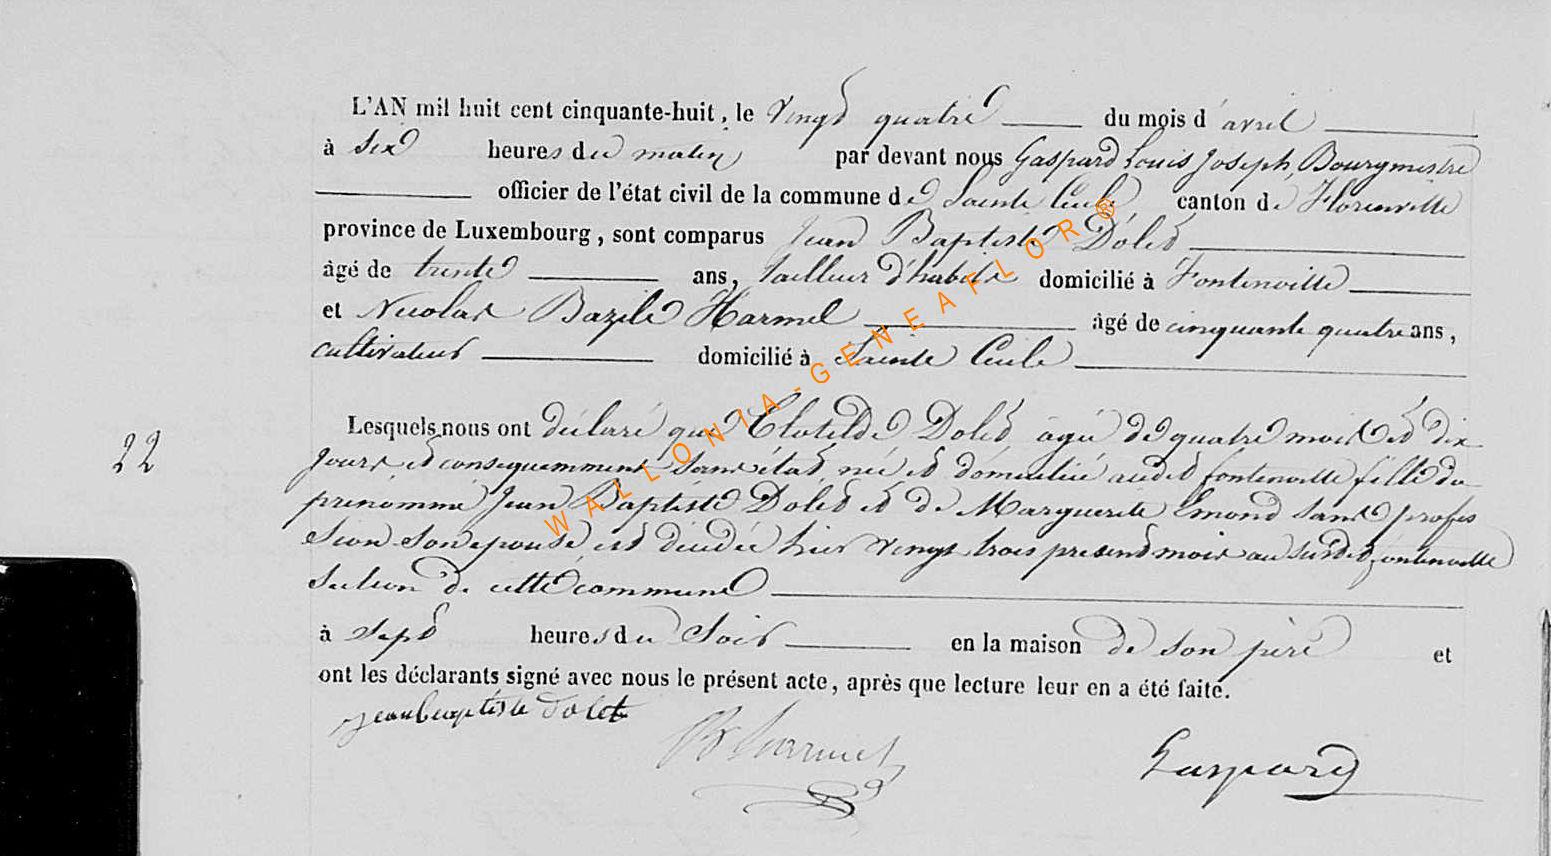 L'AN mil huit cent cinquante-huit, le vingt quatre du mois d'avril
à Six heures du matin par devant nous Gaspard Louis Joseph, Bourgmestre
officier de l'état civil de la commune de Sainte Cecile canton de Florenville
province de Luxembourg, sont comparus Jean Baptiste Dolet
âgé de trente ans, tailleur d'habits domicilié à Fontenoille
et Nicolas Bazile Harmel âgé de cinquante quatre ans,
cultivateur domicilié à Sainte Cecile
Lesquels nous ont déclaré que Clotilde Dolet agée de quatre mois et dix
22
jours et consequemment sans état née et domiciliée audit fontenoille fille du
prénommé Jean Baptiste Dolet et de Marguerite Emond sans profes
sion son epouse, est décédée hier vingt trois present mois au susdit fontenoille
section de cette commune
à sept heures du soir en la maison de son père et
ont les déclarants signé avec nous le présent acte, après que lecture leur en a été faite.
jeanbaptiste dolet
B harmel
Gaspard
WALLONIA-GENEAFLOR®